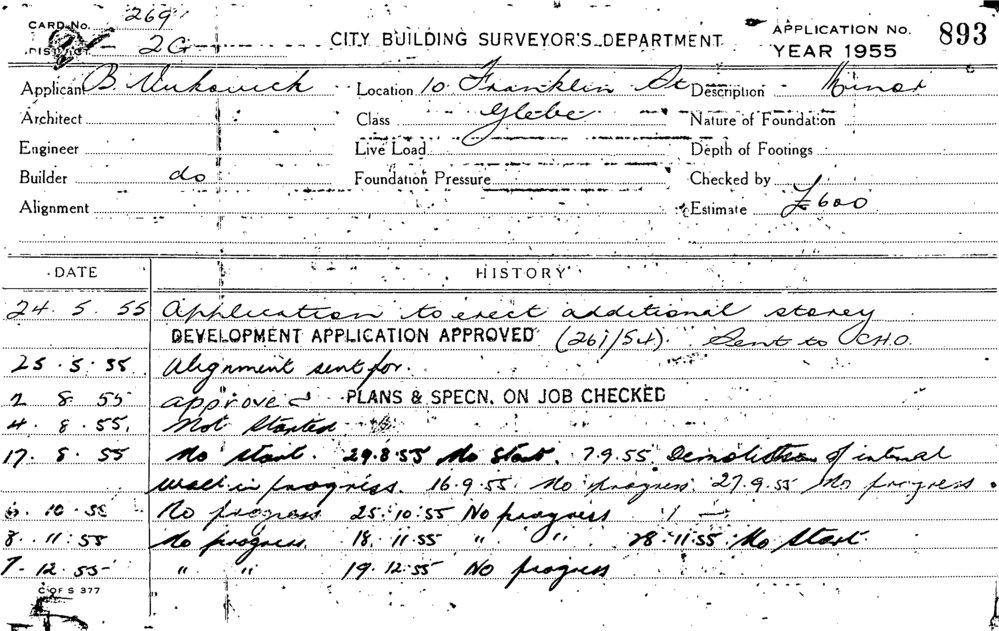 CARD No. 269
DISTRICT - 2G
CITY BUILDING SURVEYOR'S DEPARTMENT
APPLICATION No. 893
YEAR 1955
Applicant B. Vukovich Location 10 Franklin St Description Minor
Architect Class Glebe Nature of Foundation
Engineer Live Load Depth of Footings
Builder do Foundation Pressure Checked by
Alignment Estimate £600
DATE HISTORY
24. 5. 55 Application to erect additional storey
DEVELOPMENT APPLICATION APPROVED (261/54). Sent to C.H.O.
25. 5. 55 Alignment sent for.
2 8. 55 approved PLANS & SPECN. ON JOB CHECKED
4. 8. 55. Not Started
17. 8. 55 No start. 29.8.55 No Start. 7.9.55 Demolition of internal
wall in progress. 16.9.55 No progress. 27.9.55 No progress.
6. 10. 55 No progress 25.10.55 No progress
8. 11. 55 No progress. 18. 11.55 " " 28.11.55 No Start
7. 12. 55 " " 19.12.55 No progress
C OF S 377